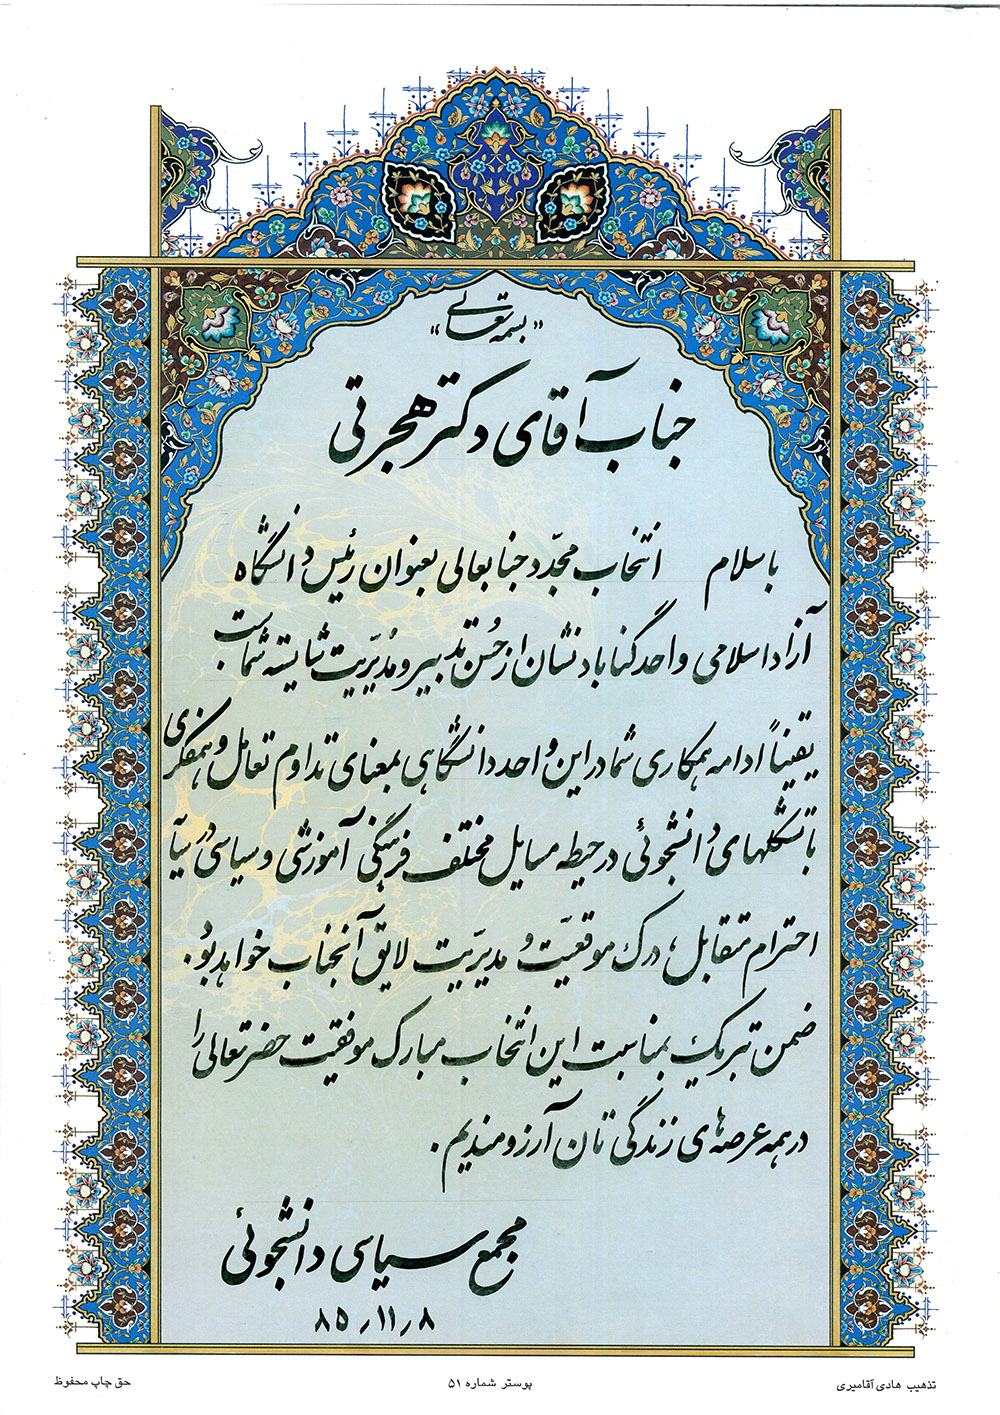 «بسمه تعالی»
جناب آقای دکتر هجرتی
با سلام انتخاب مجدّد جنابعالی بعنوان رئیس دانشگاه
آزاد اسلامی واحد گناباد نشان از حُسن تدبیر و مُدیریّت شایسته شماست
یقیناً ادامه همکاری شما در این واحد دانشگاهی بمعنای تداوم تعامل و همفکری
با تشکلهای دانشجوئی در حیطه مسایل مختلف فرهنگی آموزشی و سیاسی در
احترام متقابل، درک موقعیّت و مدیریّت لایق آنجناب خواهد بود.
ضمن تبریک بمناسبت این انتخاب مبارک موفقیت حضرتعالی را
در همه عرصه های زندگی تان آرزومندیم.
مجمع سیاسی دانشجوئی
۸۵٫۱۱٫۸
تذهیب هادی آقامیری
پوستر شماره ۵۱
حق چاپ محفوظ